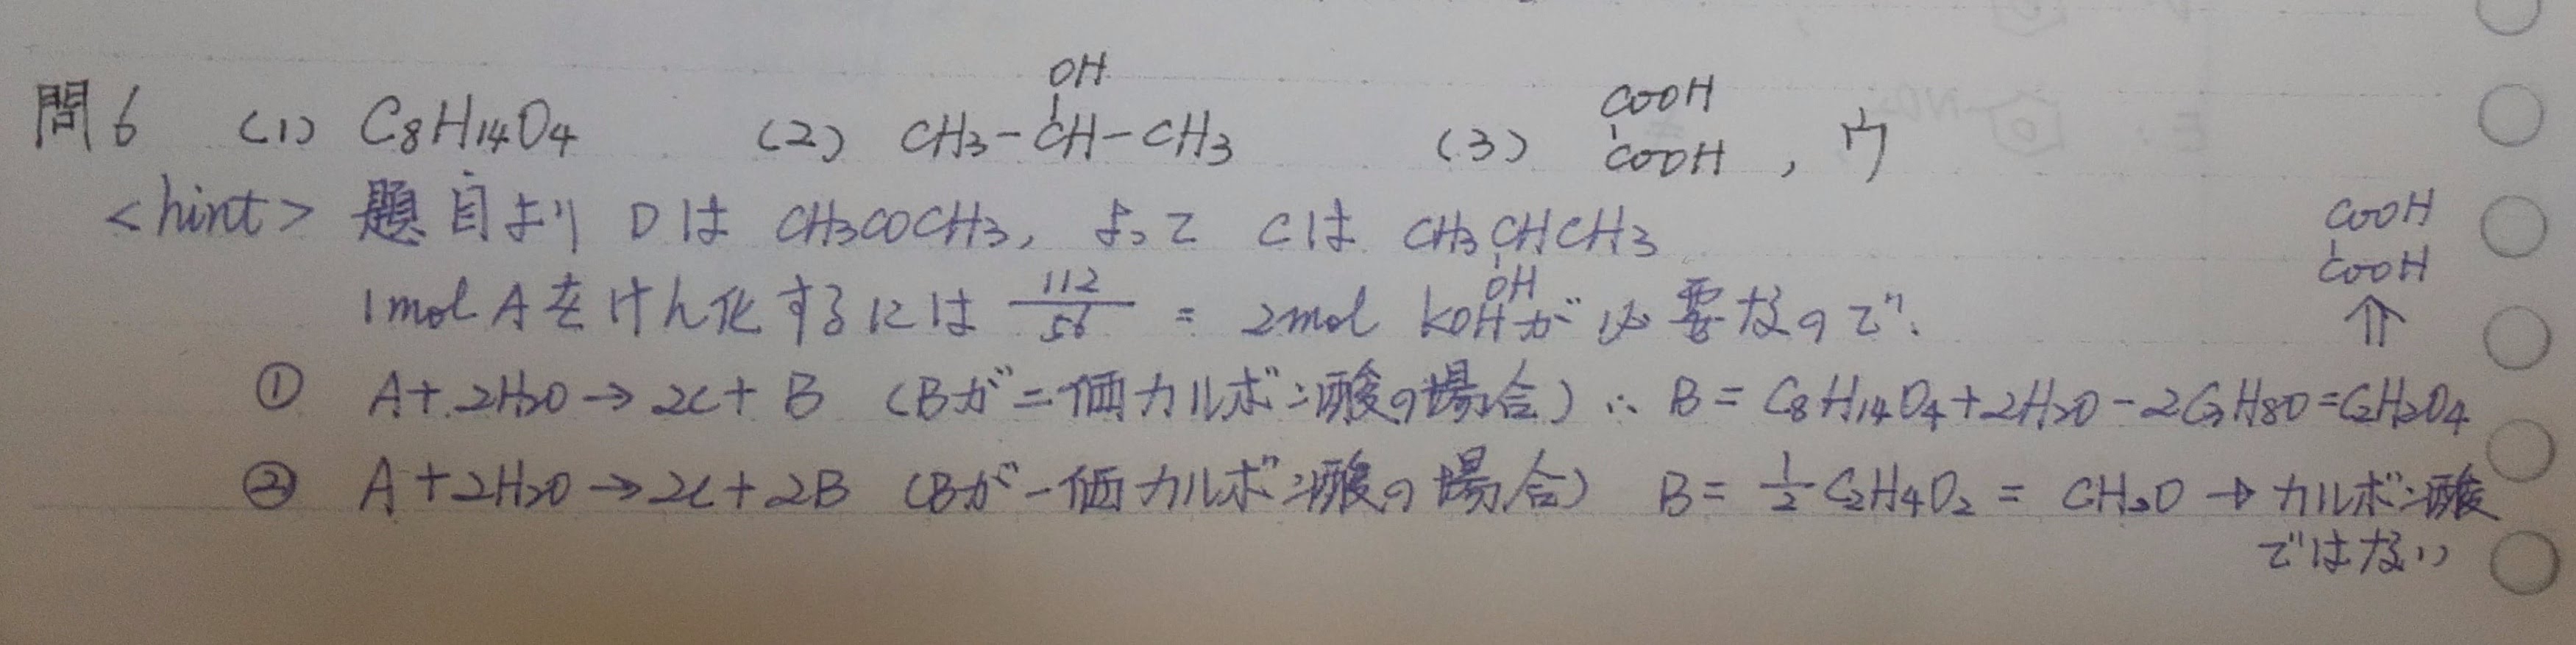 問6 (1) C8H14O4 (2) CH3-CH-CH3 (3) COOH COOH , ウ
OH
<hint> 題目より Dは CH3COCH3, よって Cは CH3CHCH3
OH
1mol Aをけん化するには 112/56 = 2mol KOHが必要なので、
COOH
COOH
⇑
① A+2H2O→2C+B (Bが二価カルボン酸の場合) ∴ B=C8H14O4+2H2O-2C3H8O=C2H2O4
② A+2H2O→2C+2B (Bが一価カルボン酸の場合) B=1/2 C2H4O2 = CH2O → カルボン酸
ではない